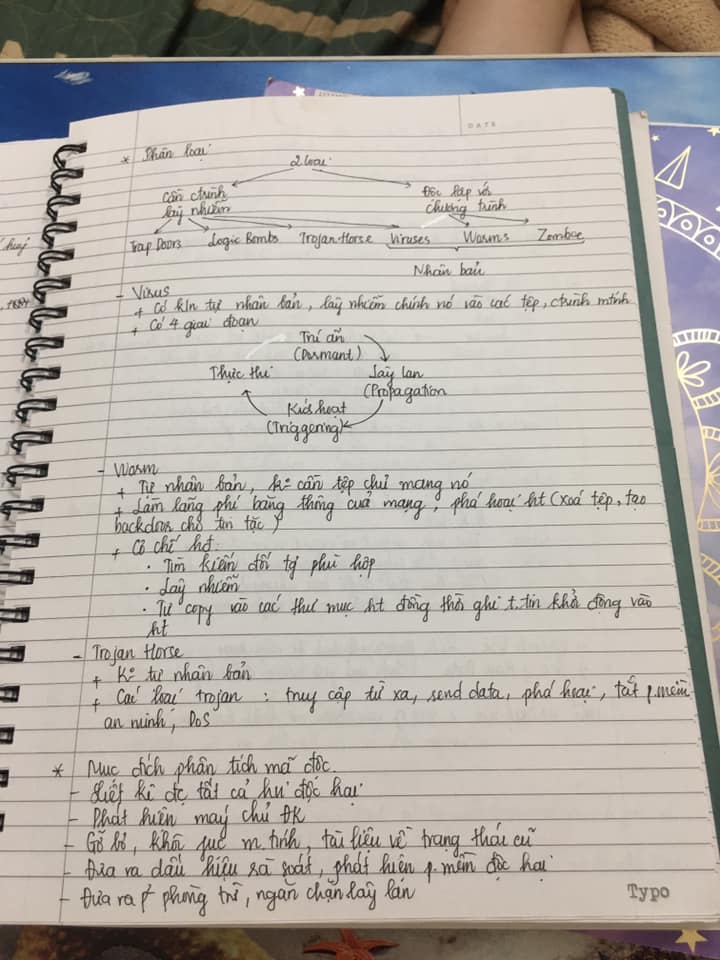 DATE
* Phân loại
2 loại
Cần ctrình Độc lập với
lây nhiễm chương trình
Trap Doors Logic Bombs Trojan Horse Viruses Worms Zombie
Nhân bản
- Virus
+ Có knăng tự nhân bản, lây nhiễm chính nó vào các tệp, ctrình mtính
+ Có 4 giai đoạn
Trú ẩn
(Dormant)
Thực thi Lây lan
(Propagation
Kích hoạt
(Triggering)
- Worm
+ Tự nhân bản, k= cần tệp chủ mang nó
+ Làm lãng phí băng thông của mạng, phá hoại ht (xoá tệp, tạo
backdoor cho tin tặc)
+ Cơ chế hđ:
. Tìm kiếm đối tg phù hợp
. Lây nhiễm
. Tự copy vào các thư mục ht đồng thời ghi t.tin khởi động vào
ht
- Trojan Horse
+ K= tự nhân bản
+ Các loại trojan : truy cập từ xa, send data, phá hoại, tắt p.mềm
an ninh, DoS
* Mục đích phân tích mã độc
- Liệt kê đc tất cả hvi độc hại
- Phát hiện máy chủ ĐK
- Gỡ bỏ, khôi phục m.tính, tài liệu về trạng thái cũ
- Đưa ra dấu hiệu rà soát, phát hiện p.mềm độc hại
- Đưa ra p² phòng trừ, ngăn chặn lây lan
Typo